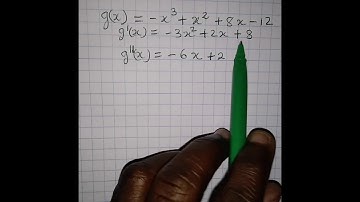 g(x) = -x³ + x² + 8x - 12
g'(x) = -3x² + 2x + 8
g''(x) = -6x + 2